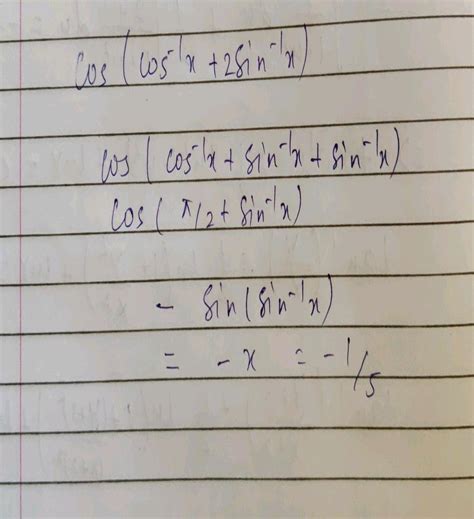 cos (cos⁻¹x + 2sin⁻¹x)
cos ( cos⁻¹x + sin⁻¹x + sin⁻¹x)
cos ( π/2 + sin⁻¹x)
- sin (sin⁻¹x)
= - x = -1/5